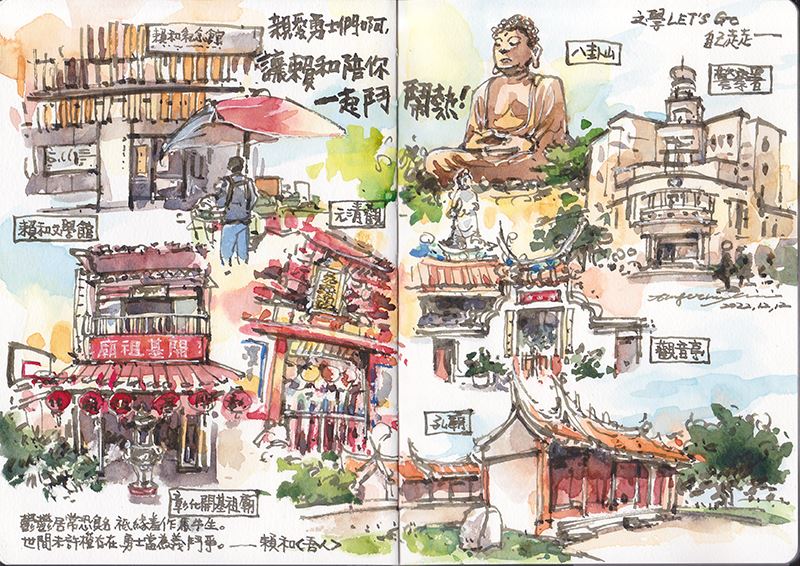 賴和紀念館
親愛勇士們啊,
讓賴和陪你
一起鬥
鬧熱!
文學LET'S Go
自己走走—
八卦山
警察署
賴和文學館
元清觀
廟祖基開
2022.12.12
觀音亭
孔廟
彰化開基祖廟
鬱鬱居常恐負名 祇緣羞作馬牛生。
世間未許權存在 勇士當為義鬥爭。——賴和<吾人>